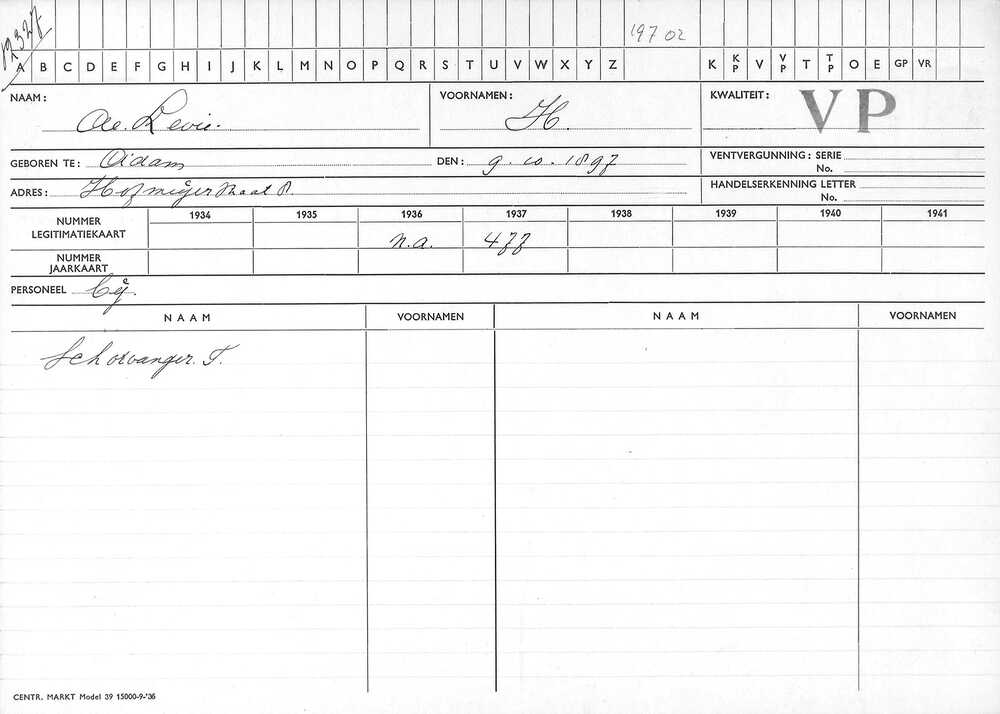 12327
19702
A B C D E F G H I J K L M N O P Q R S T U V W X Y Z K KP V VP T TP O E GP VR
NAAM: de Levie. VOORNAMEN: H. KWALITEIT: VP
GEBOREN TE: A'dam DEN: 9.10.1897 VENTVERGUNNING: SERIE
No.
ADRES: Hofmeijerstraat 8. HANDELSERKENNING LETTER
No.
1934 1935 1936 1937 1938 1939 1940 1941
NUMMER LEGITIMATIEKAART n.a. 477
NUMMER JAARKAART
PERSONEEL bij.
NAAM VOORNAMEN NAAM VOORNAMEN
Schorvanger. T.
CENTR. MARKT Model 39 15000-9-'36